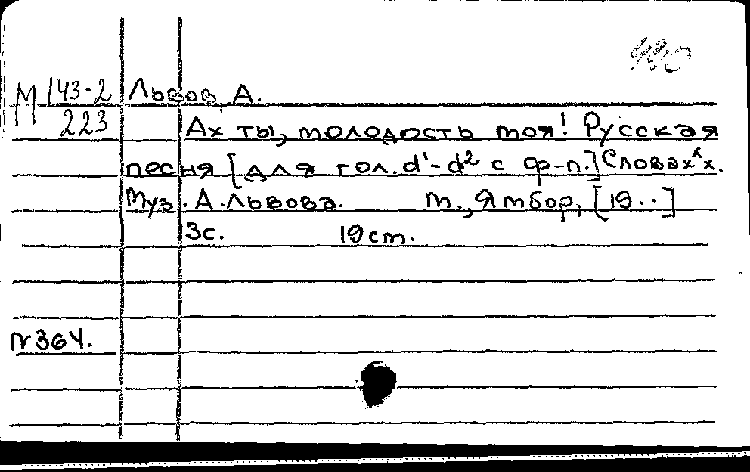 М 143-2
223
Львов А.
Ах ты, молодость моя! Русская
песня [для гол. d¹-d² с ф-п.] Слова х х х.
Муз. А. Львова. М., Ямбор, [19..]
3с. 19 cm.
N 364.